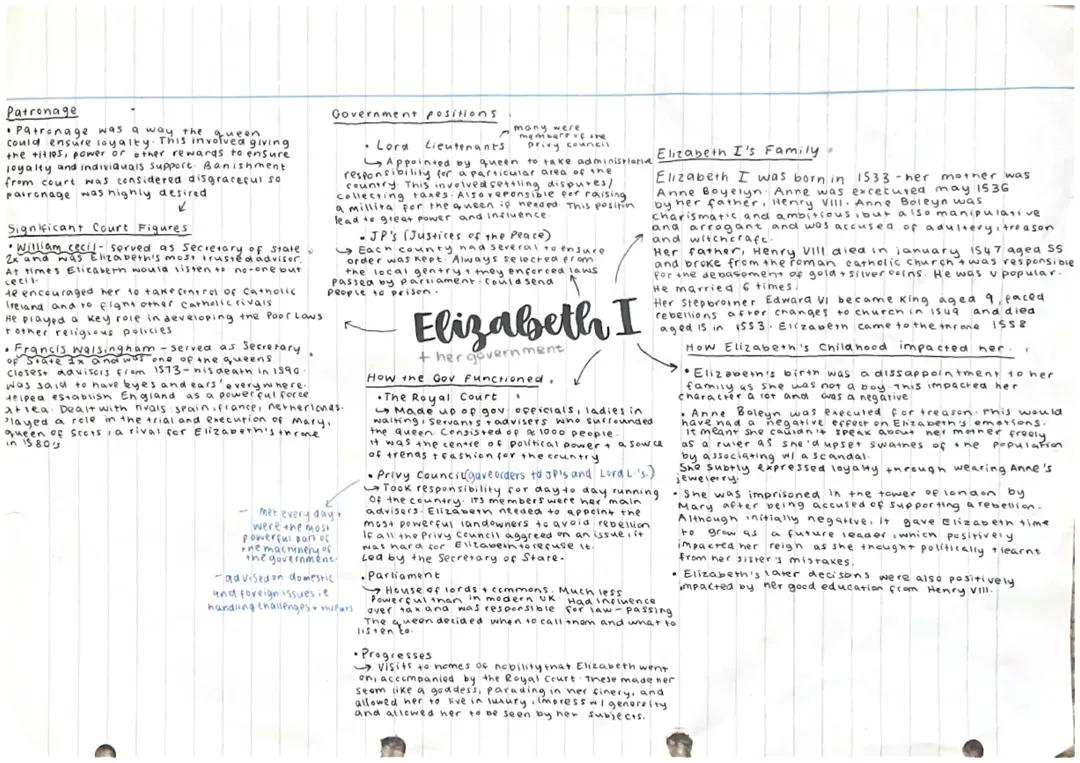 Patronage
• Patronage was a way the queen
could ensure loyalty. This involved giving
the titles, power or other rewards to ensure
loyalty and individuals support. Banishment
from court was considered disgraceful so
patronage was highly desired
Significant Court Figures
• William Cecil - served as Secretary of State
2x and was Elizabeth's most trusted advisor.
At times Elizabeth would listen to no-one but
Cecil.
He encouraged her to take control of Catholic
Ireland and to fight other Catholic rivals
He played a key role in developing the Poor Laws
+ other religious policies
• Francis Walsingham - served as Secretary
of State 1x and was one of the queens
closest advisors from 1573 - his death in 1590.
Was said to have 'eyes and ears' everywhere.
Helped establish England as a powerful force
at sea. Dealt with rivals Spain, France, Netherlands.
Played a role in the trial and execution of Mary,
Queen of Scots, a rival for Elizabeth's throne
in 1580s
Government positions
• Lord Lieutenants
many were
members of the
privy council
↳ Appointed by queen to take administrative
responsibility for a particular area of the
country. This involved settling disputes/
collecting taxes. Also responsible for raising
a millita for the queen if needed This position
lead to great power and influence.
• JP's (Justices of the Peace)
→ Each county had several to ensure
order was kept. Always selected from
the local gentry + they enforced laws
passed by parliament. Could send
people to prison.
Elizabeth I
+ her government
How the Gov Functioned.
• The Royal Court
↳ Made up of gov officials, ladies in
waiting, servants + advisers who surrounded
the queen. Consisted of ≈ 1000 people.
It was the centre of political power + a source
of trends + fashion for the country
• Privy Council (gave orders to JP's and Lord L's.)
↳ Took responsibility for day to day running
of the country. Its members were her main
advisers. Elizabeth needed to appoint the
most powerful landowners to avoid rebellion
If all the Privy Council aggreed on an issue, it
was hard for Elizabeth to refuse it.
Led by the Secretary of State.
- met every day +
were the most
powerful part of
the machinery of
the government
- advised on domestic
and foreign issues ie
handling challenges + threats
• Parliament
→ House of lords + commons. Much less
Powerful than in modern UK. Had influence
over tax and was responsible for law-passing
The queen decided when to call them and what to
listen to.
• Progresses
→ Visits to homes of nobility that Elizabeth went
on, accompanied by the Royal Court. These made her
seem like a goddess, parading in her finery, and
allowed her to live in luxury, impress w/ generosity
and allowed her to be seen by her subjects.
Elizabeth I's Family
Elizabeth I was born in 1533 - her mother was
Anne Boyelyn. Anne was excecuted may 1536
by her father, Henry VIII. Anne Boleyn was
charismatic and ambitious, but also manipulative
and arrogant and was accused of adultery, treason
and witchcraft.
Her father, Henry VIII died in january 1547 aged 55
and broke from the roman catholic church + was responsible
for the debasement of gold + silver coins. He was v popular.
He married 6 times.
Her Stepbrother Edward VI became King aged 9, faced
rebellions after changes to church in 1549 and died
aged 15 in 1553. Elizabeth came to the throne 1558
How Elizabeth's Childhood impacted her.
• Elizabeth's birth was a dissapointment to her
family as she was not a boy. This impacted her
character a lot and was a negative
• Anne Boleyn was executed for treason. This would
have had a negative effect on Elizabeth's emotions.
It meant she couldn't speak about her mother freely
as a ruler as she'd upset swathes of the population
by associating w/ a scandal.
She subtly expressed loyalty through wearing Anne's
jewelerry.
• She was imprisoned in the tower of london by
Mary after being accused of supporting a rebellion.
Although initially negative, it gave Elizabeth time
to grow as a future leader, which positively
impacted her reign as she thought politically + learnt
from her sister's mistakes.
• Elizabeth's later decisons were also positively
impacted by her good education from Henry VIII.